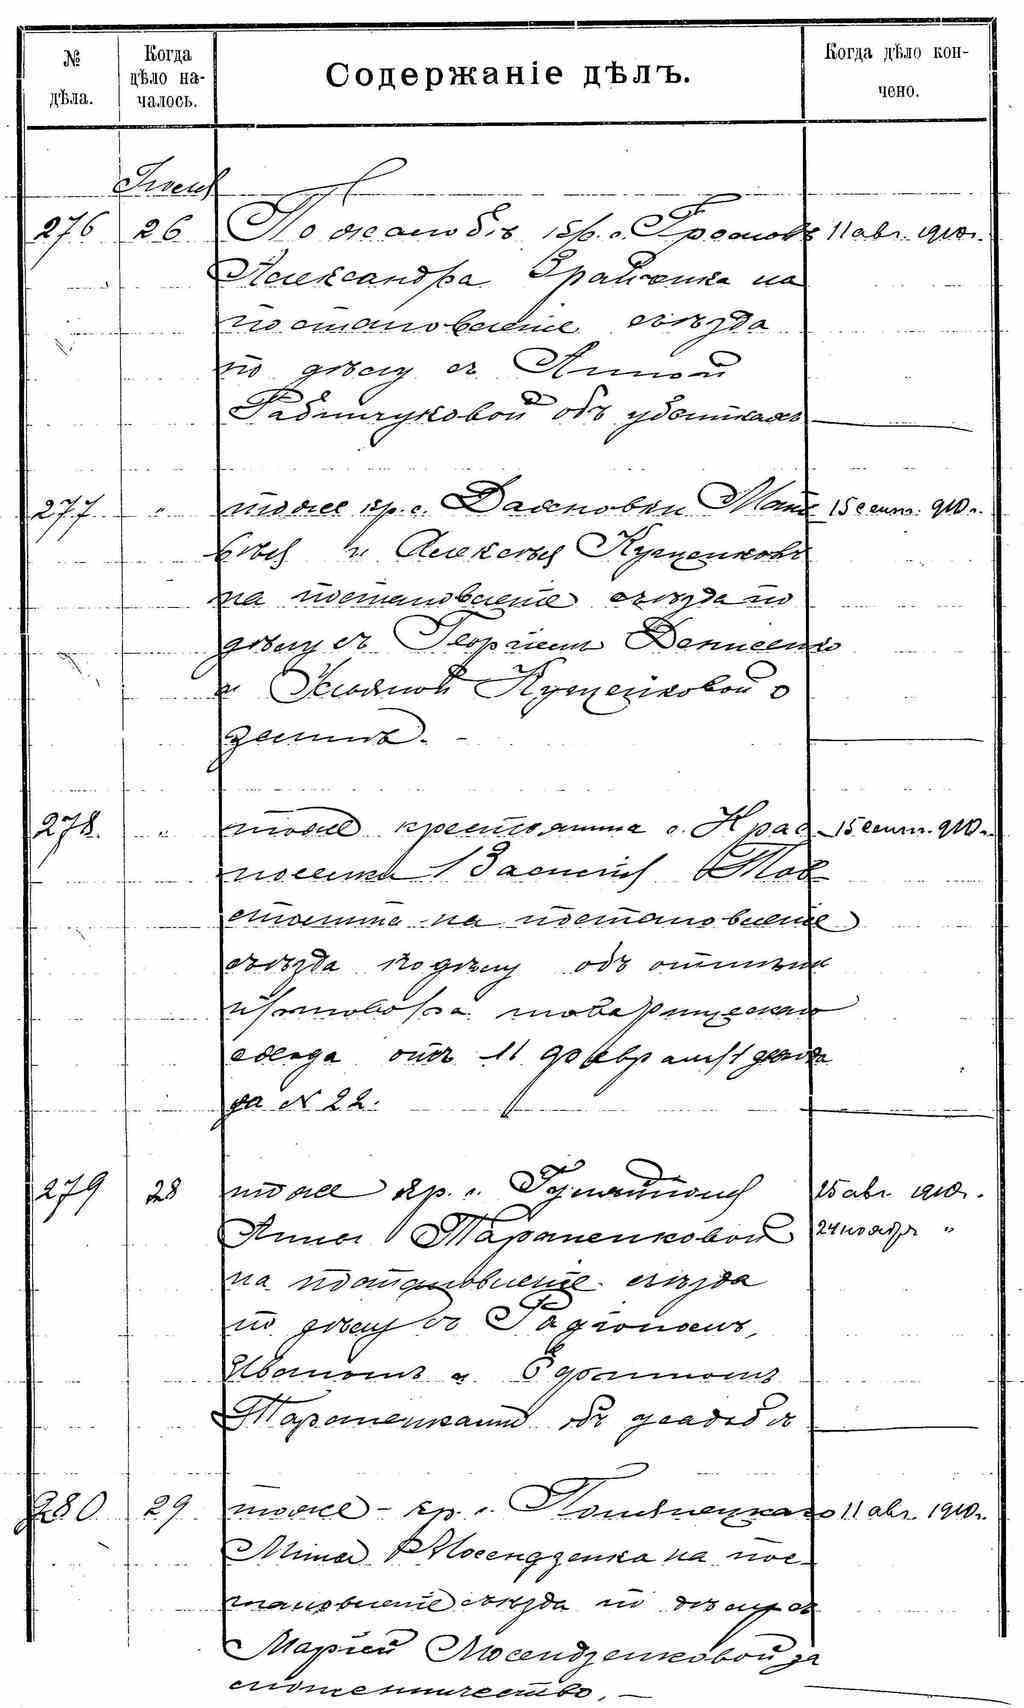 № дѣла.
Когда дѣло началось.
Содержаніе дѣлъ.
Когда дѣло кончено.
276 26 По жалобѣ кр. с. 11 авг. 1910 г.
Александра на
постановленіе съѣзда
по дѣлу съ Анной
объ убыткахъ
277 " тоже кр. с. Мат 15 сент. 910 г.
вѣя и Алексѣя Куценковъ
на постановленіе съѣзда по
дѣлу съ Георгіемъ Денисенко
и Ульяной Куценковой о
землѣ. -
278. " тоже крестьянина с. Крас 15 сент. 910 г.
носелки Василія Тов
на постановленіе
съѣзда по дѣлу объ отмѣнѣ
приговора товарищескаго
схода отъ 11 февраля
да № 22.
279 28 тоже кр. с. 25 авг. 1910 г.
Анны Тараненковой 24 ноября "
на постановленіе съѣзда
по дѣлу съ Радіономъ,
Иваномъ и
Тараненками объ усадьбѣ
280 29 тоже - кр. с. 11 авг. 1910 г.
Мины Мосендзенка на пос-
тановленіе съѣзда по дѣлу съ
Маріей Мосендзенковой за
мошенничество. -